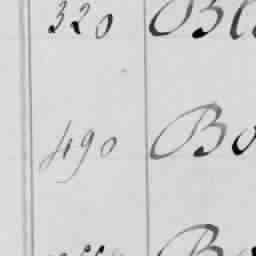 320 Bl
490 Bo
Bo